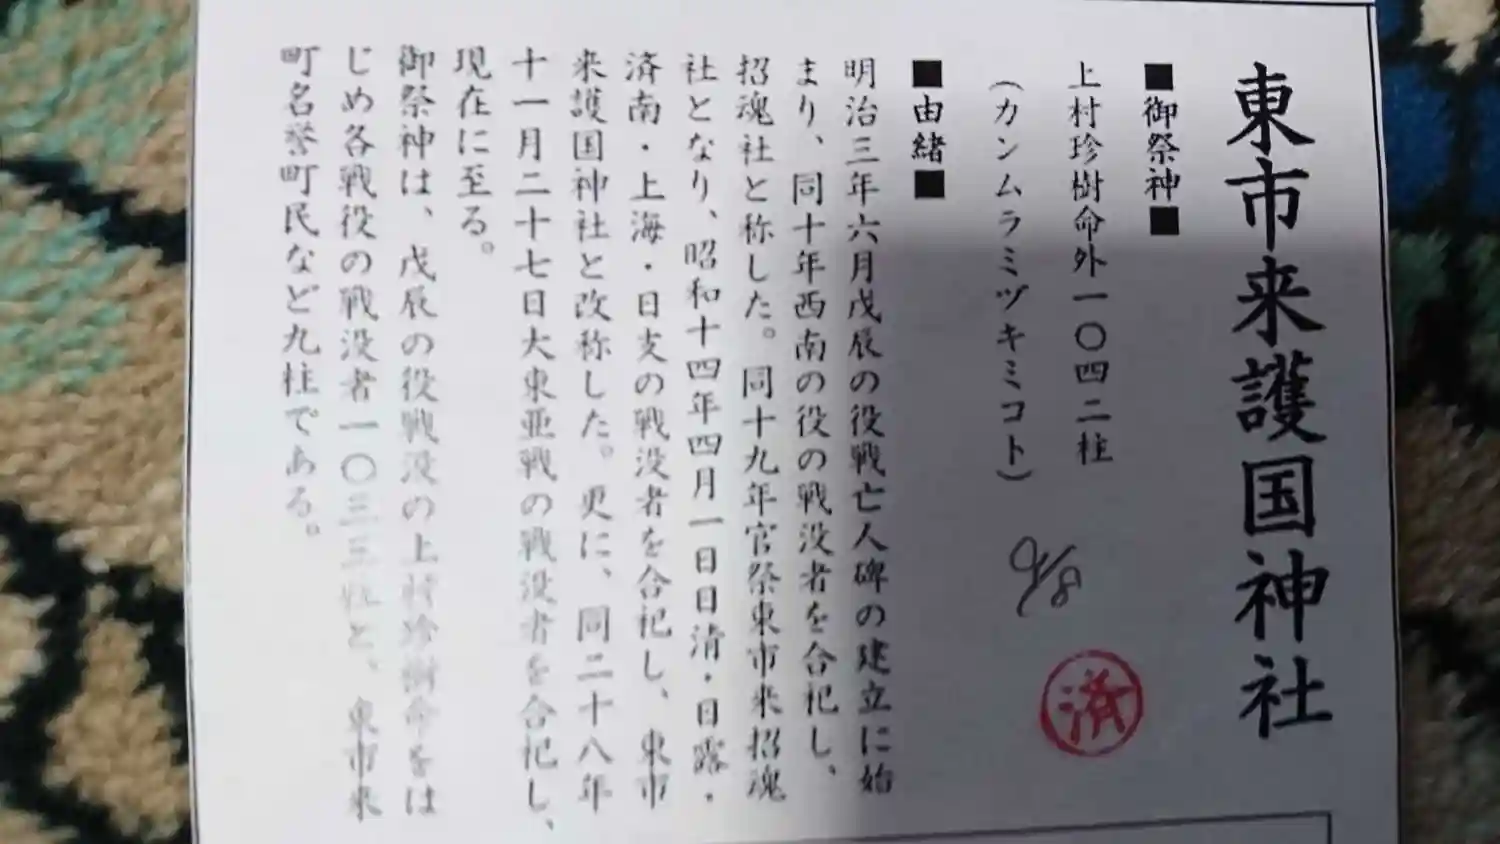 東市来護国神社
■御祭神■
上村珍樹命外一〇四二柱
(カンムラミヅキミコト)
9/8
済
■由緒■
明治三年六月戊辰の役戦亡人碑の建立に始
まり、同十年西南の役の戦没者を合祀し、
招魂社と称した。同十九年官祭東市来招魂
社となり、昭和十四年四月一日日清・日露・
済南・上海・日支の戦没者を合祀し、東市
来護国神社と改称した。更に、同二十八年
十一月二十七日大東亜戦の戦没者を合祀し、
現在に至る。
御祭神は、戊辰の役戦没の上村珍樹命をは
じめ各戦役の戦没者一〇三三柱と、東市来
町名誉町民など九柱である。